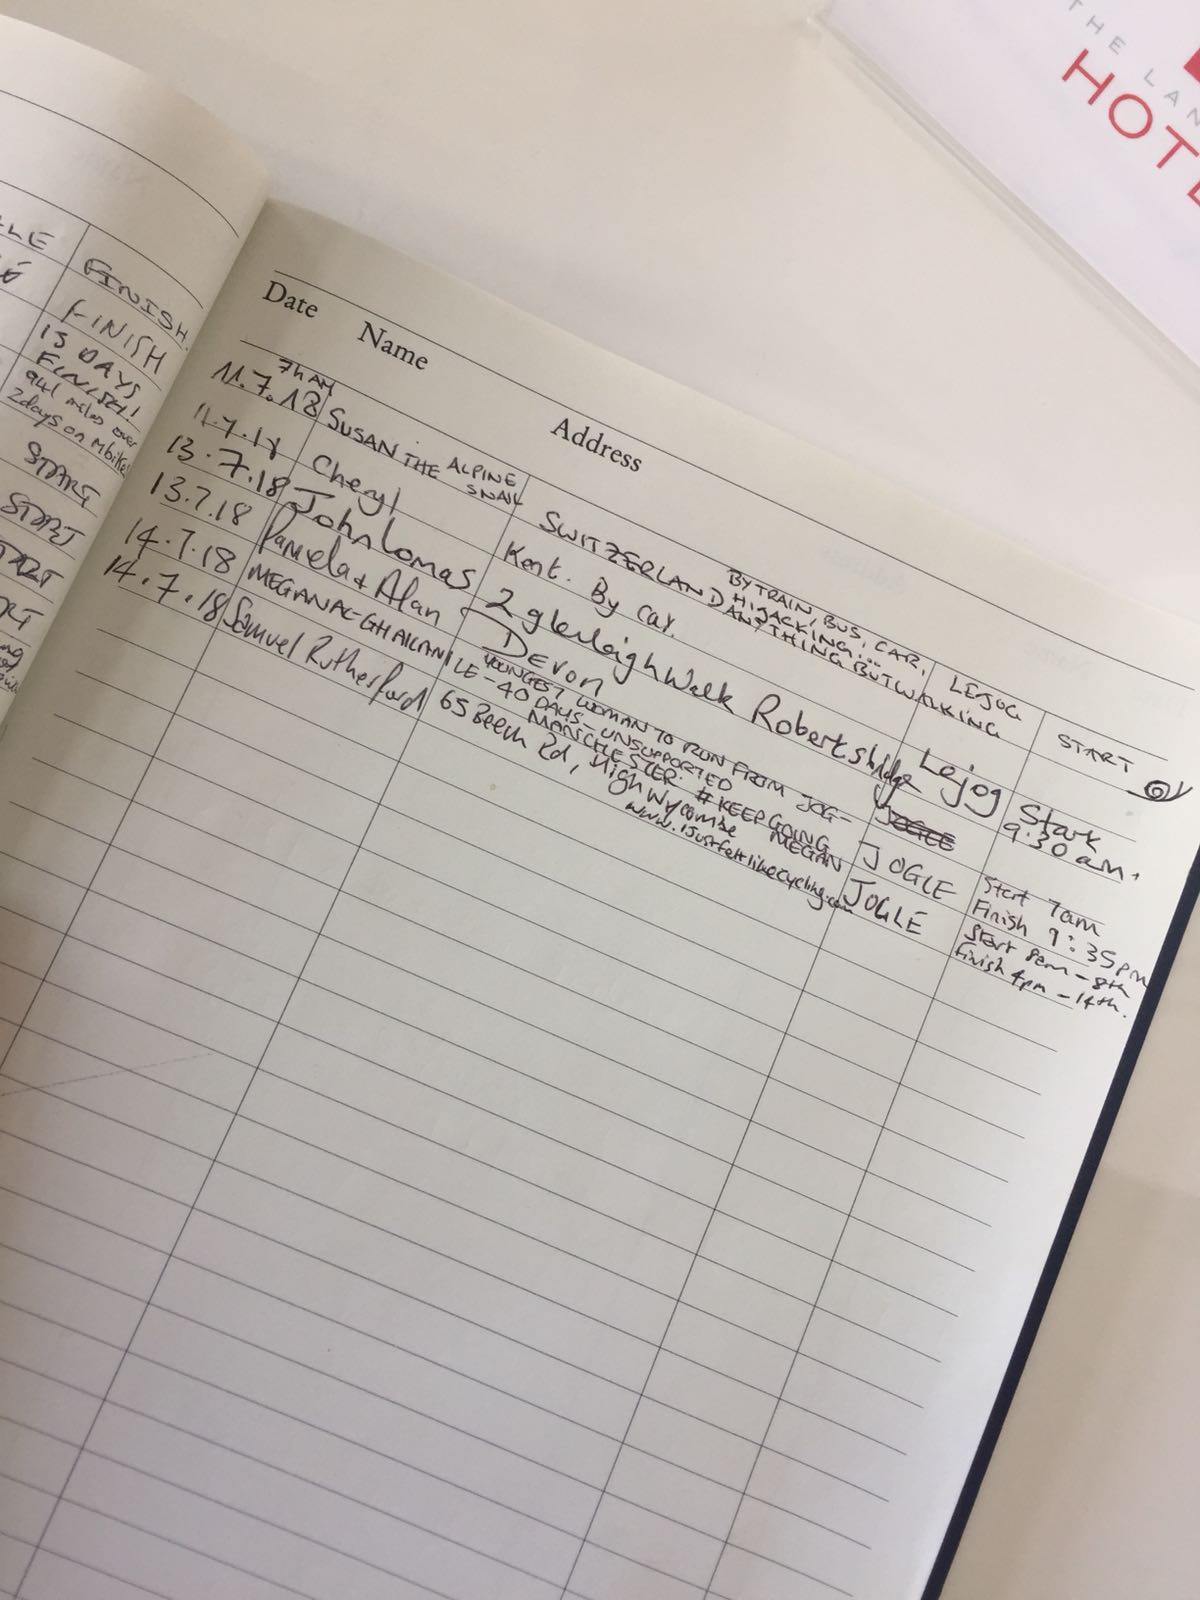 THE LAN
HOTE
FINISH
FINISH
15 DAYS
FINISH!
941 miles over
2 days on mbike
START
START
Date Name Address
7h AM
11.7.18 SUSAN THE ALPINE SNAIL SWITZERLAND BY TRAIN, BUS, CAR, HIJACKING... ANYTHING BUT WALKING LEJOG START
11.7.18 Cheryl Kent. By car.
13.7.18 John Lomas 2 glenleigh Walk Robertsbridge Lejog Start 9.30 am.
13.7.18 Pamela + Alan Devon JOGLE
14.7.18 MEGAN AL-GHAILANI YOUNGEST WOMAN TO RUN FROM JOG-
LE - 40 DAYS - UNSUPPORTED
MANCHESTER. # KEEP GOING MEGAN JOGLE Start 7am
Finish 9:35pm
14.7.18 Samuel Rutherford 65 Beech Rd, High Wycombe JOGLE Start 8am - 8th
www.ijustfeltlikecycling.com Finish 4pm - 14th.